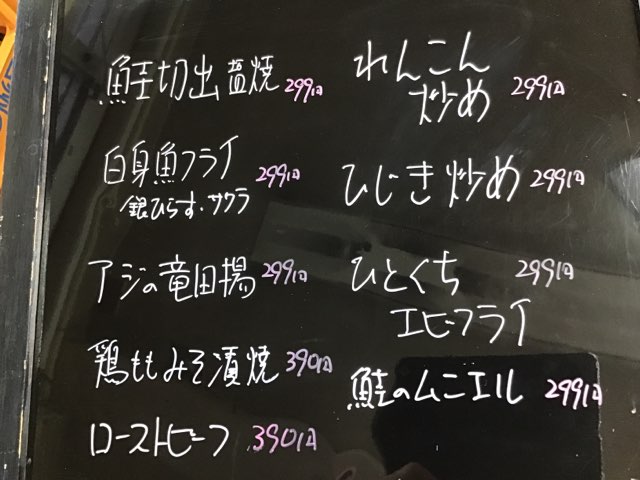 鮭切出塩焼 299円
白身魚フライ 299円
銀ひらす・サワラ
アジの竜田揚 299円
鶏ももみそ漬焼 390円
ローストビーフ 390円
れんこん
炒め 299円
ひじき炒め 299円
ひとくち 299円
エビフライ
鮭のムニエル 299円